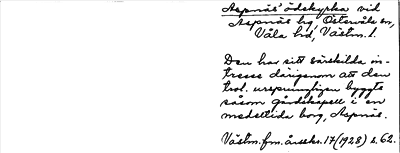 Aspnäs' ödekyrka vid
Aspnäs bg, Östervåla sn,
Våla hd, Västm. l.
Den har sitt särskilda in-
tresse därigenom att den
trol. ursprungligen byggts
såsom gårdskapell i en
medeltida borg, Aspnäs.
Västm. fm. årsskr. 17 (1928) s. 62.